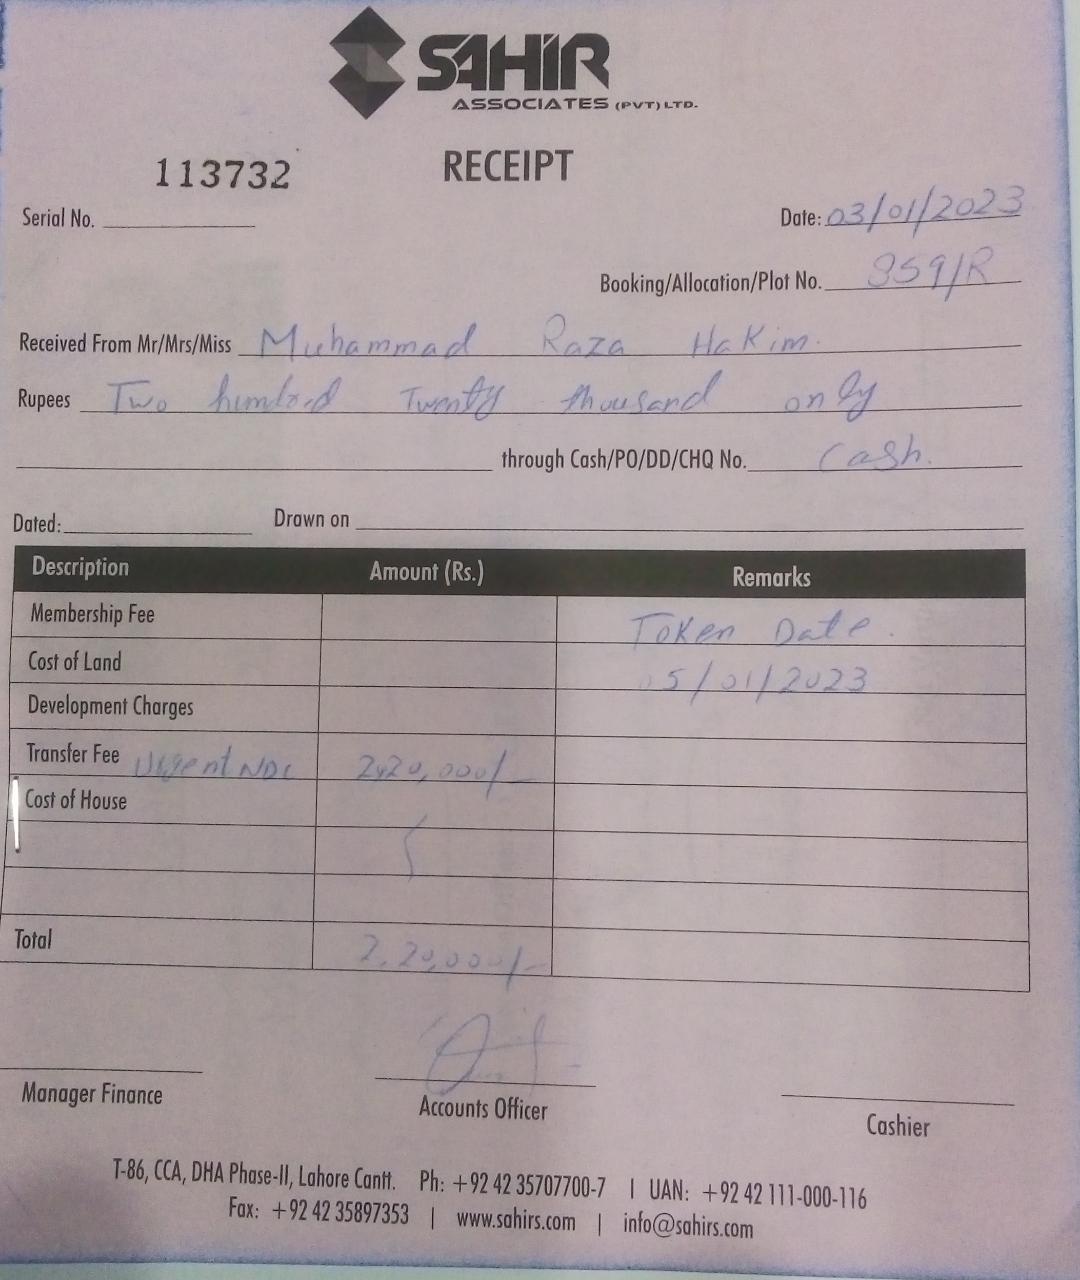 SAHIR
ASSOCIATES (PVT) LTD.
RECEIPT
113732
Serial No.
Date: 03/01/2023
Booking/Allocation/Plot No. 859/R
Received From Mr/Mrs/Miss Muhammad Raza Hakim.
Rupees Two hundred Twenty thousand only
through Cash/PO/DD/CHQ No. Cash.
Dated: Drawn on
Description Amount (Rs.) Remarks
Membership Fee Token Date.
Cost of Land 05/01/2023
Development Charges
Transfer Fee Urgent NDC 2,20,000/-
Cost of House
Total 2,20,000/-
Manager Finance
Accounts Officer
Cashier
T-86, CCA, DHA Phase-II, Lahore Cantt. Ph: +92 42 35707700-7 | UAN: +92 42 111-000-116
Fax: +92 42 35897353 | www.sahirs.com | info@sahirs.com